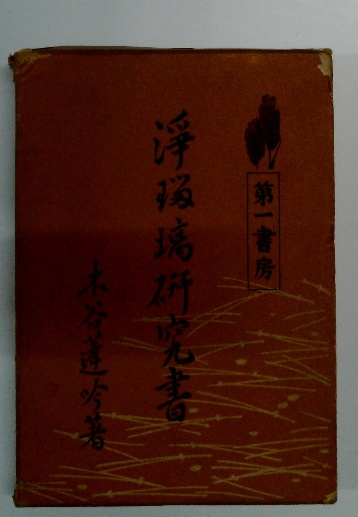 第一書房
淨瑠璃研究書
木谷蓬吟著